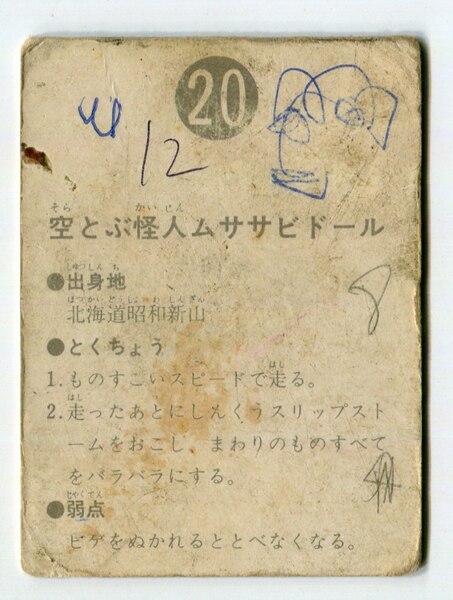 20
12
空とぶ怪人ムササビドール
●出身地
北海道昭和新山
●とくちょう
1.ものすごいスピードで走る。
2.走ったあとにしんくうスリップスト
ームをおこし まわりのものすべて
をバラバラにする。
●弱点
ヒゲをぬかれるととべなくなる。